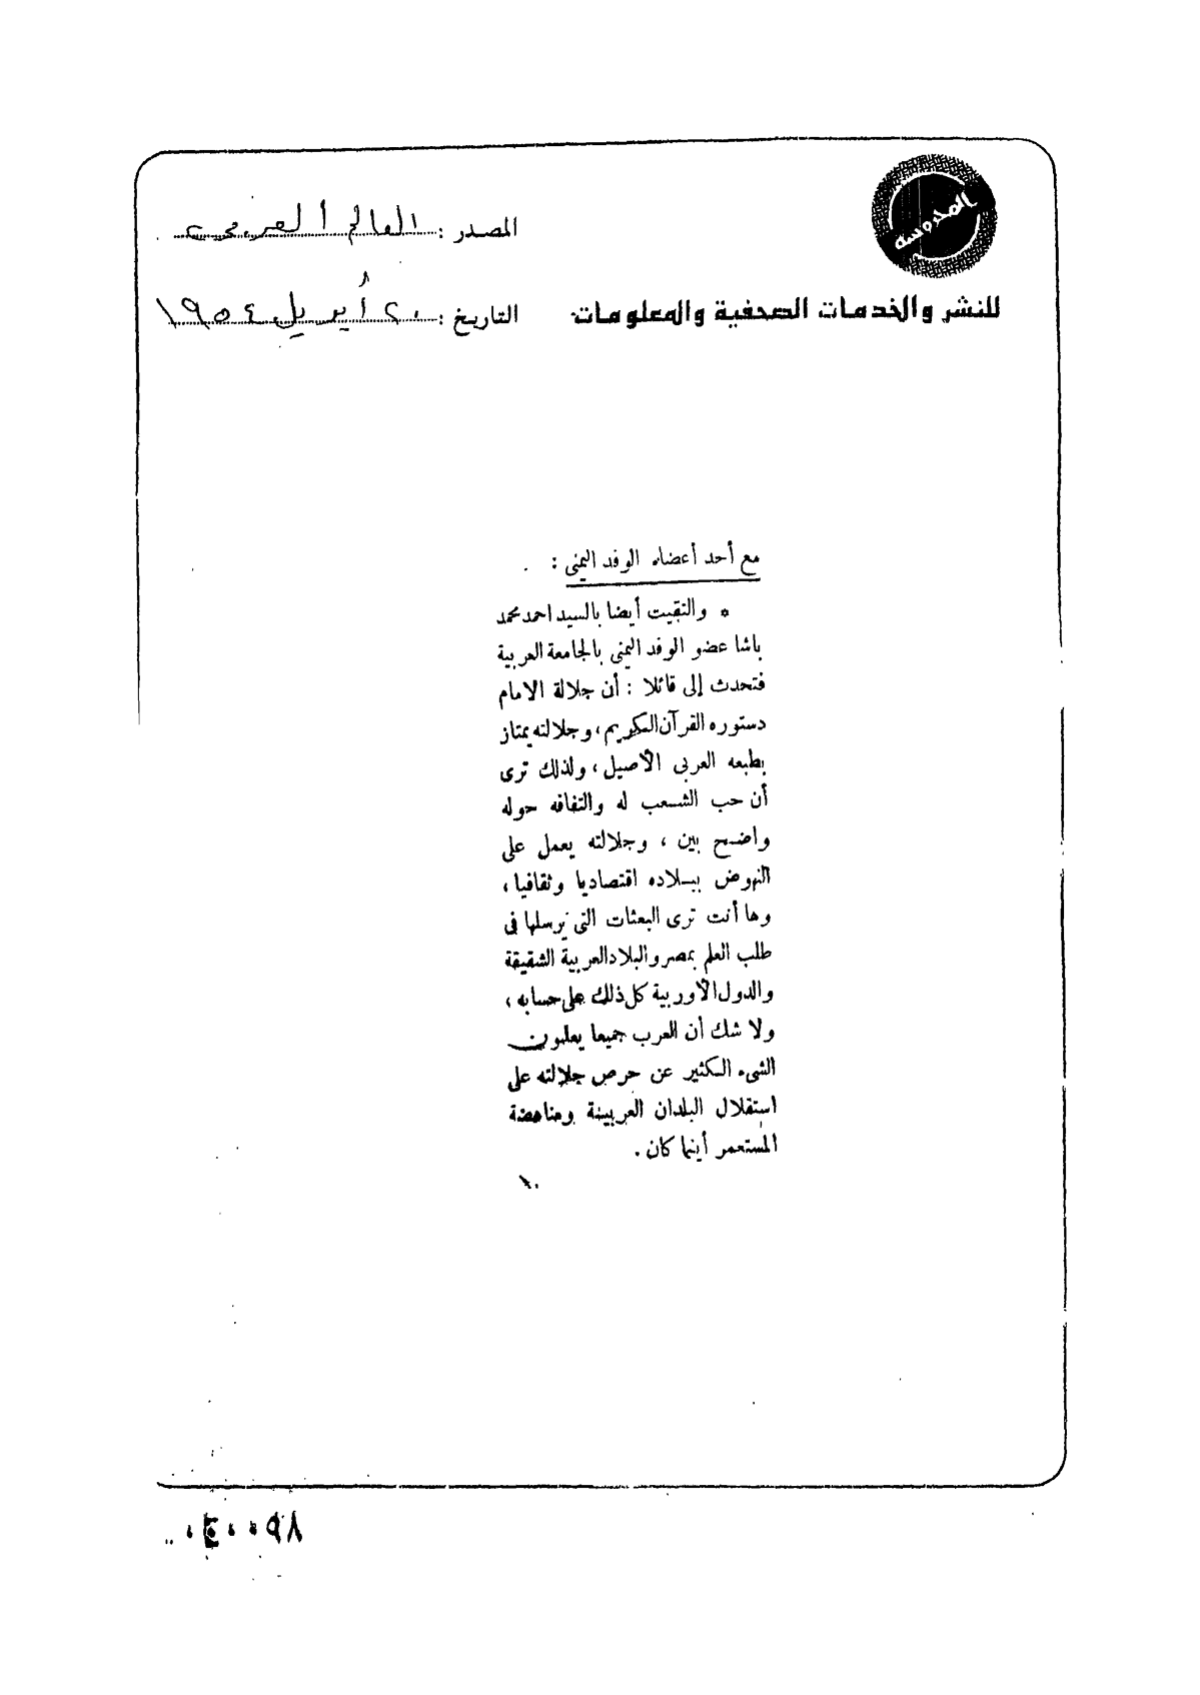 المحروسه
المصدر : العالم العربى
للنشر والخدمات الصحفية والمعلومات
التاريخ : ٢٠ أبريل ١٩٥٤
مع أحد أعضاء الوفد اليمنى :
* والتقيت أيضا بالسيد احمد محمد
باشا عضو الوفد اليمنى بالجامعة العربية
فتحدث إلى قائلا : أن جلالة الامام
دستوره القرآن الكريم ، وجلالته يمتاز
بطبعه العربى الأصيل ، ولذلك ترى
أن حب الشعب له والتفافه حوله
واضح بين ، وجلالته يعمل على
النهوض ببلاده اقتصاديا وثقافيا ،
وها أنت ترى البعثات التى يرسلها فى
طلب العلم بمصر والبلاد العربية الشقيقة
والدول الأوربية كل ذلك على حسابه ،
ولا شك أن العرب جميعا يعلمون
الشىء الكثير عن حرص جلالته على
استقلال البلدان العربية ومناهضة
المستعمر أينما كان .